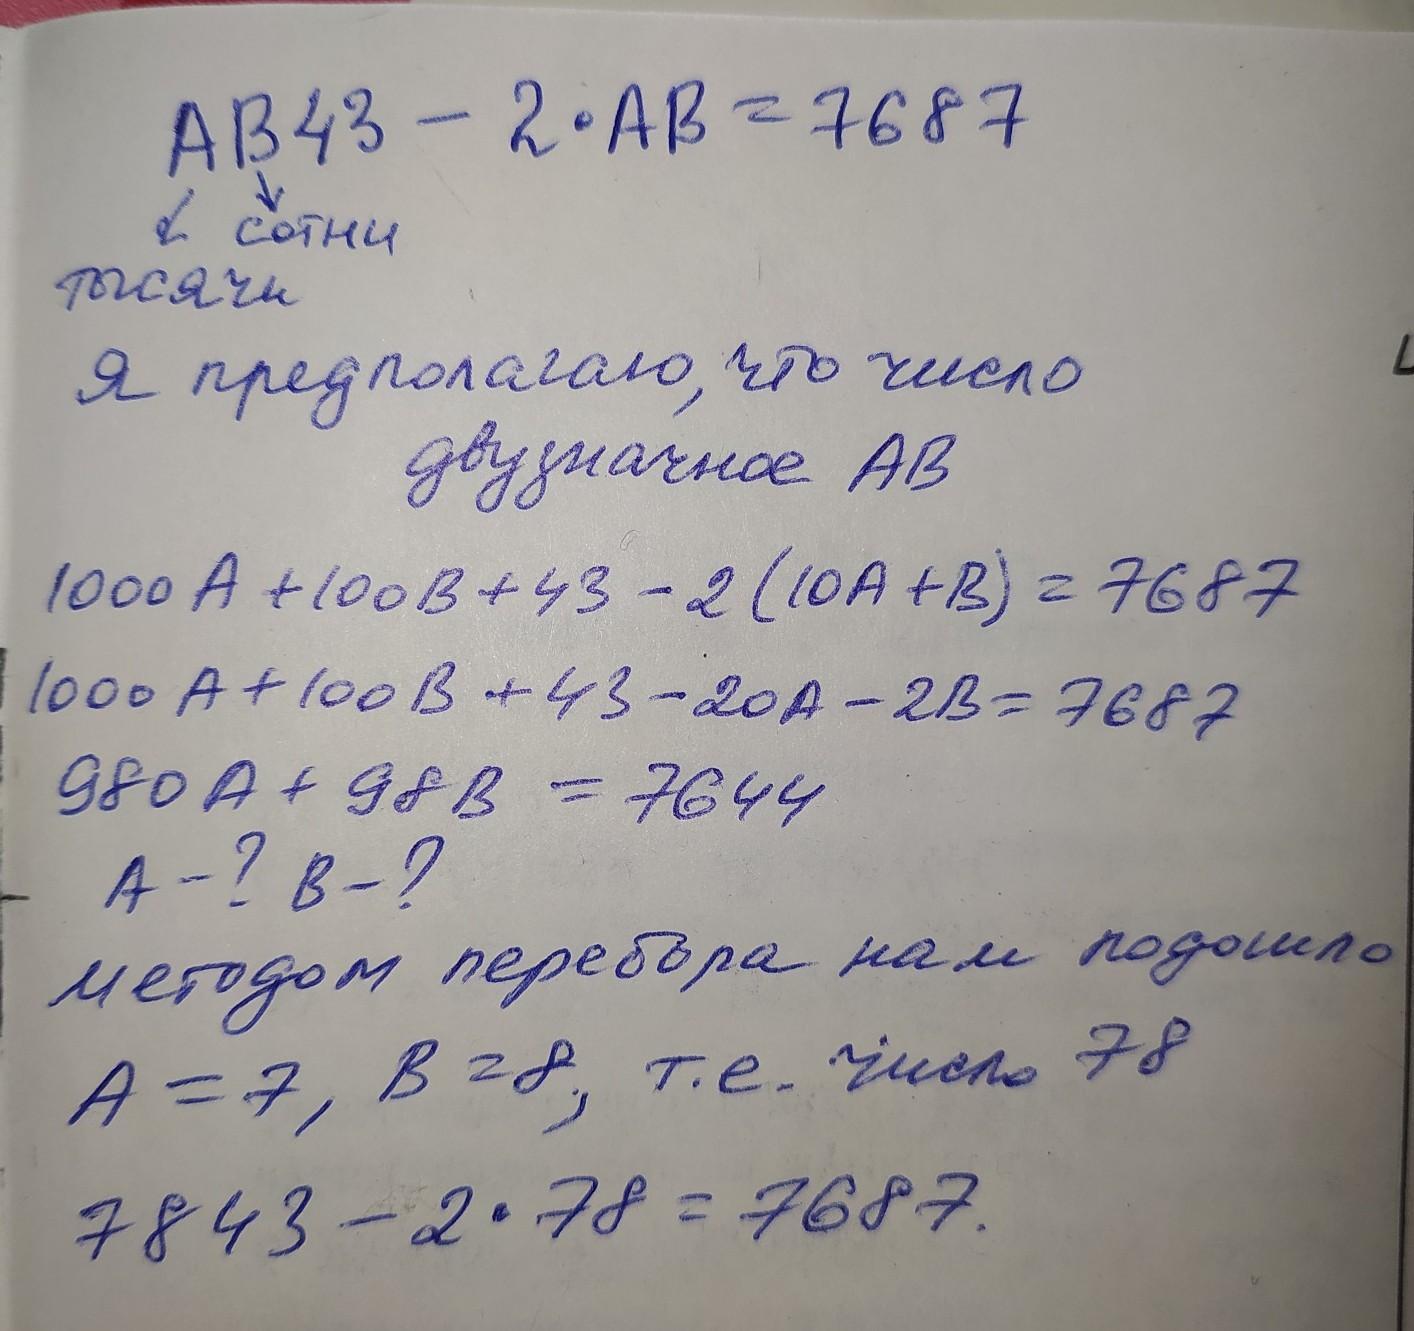 АВ43 - 2·АВ = 7687
сотни
тысячи
Я предполагаю, что число
двузначное АВ
1000А + 100В + 43 - 2(10А + В) = 7687
1000А + 100В + 43 - 20А - 2В = 7687
980А + 98В = 7644
А - ? В - ?
методом перебора нам подошло
А = 7, В = 8, т.е. число 78
7843 - 2·78 = 7687.